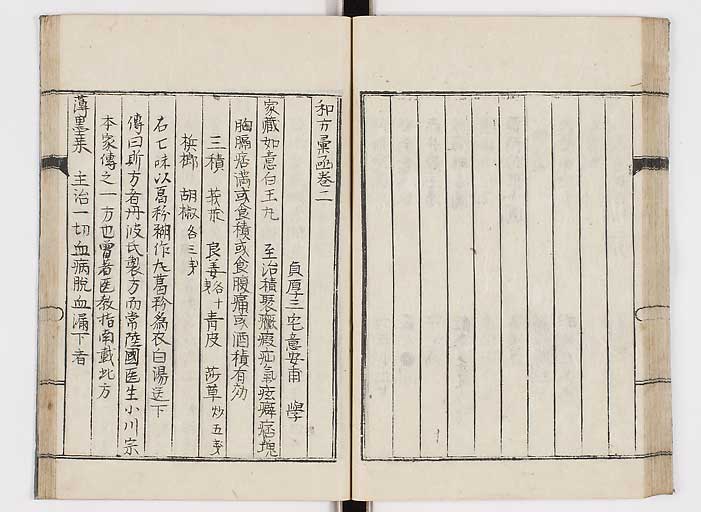 和方彙函巻二
貞厚三宅意安甫 學
家藏如意白玉丸 至治積聚癥瘕疝氣痃癖痞塊
胸膈痞満或食積或食腹痛或酒積有効
三積 莪朮 良姜各十 青皮 莎草炒五匁
梹榔 胡椒各三匁
右七味以葛粉糊作丸葛粉為衣白湯送下
傳曰斯方者丹波氏製方而常陸國医生小川宗
本家傳之一方也曽著医教指南載此方
薄墨 主治一切血病脱血漏下者